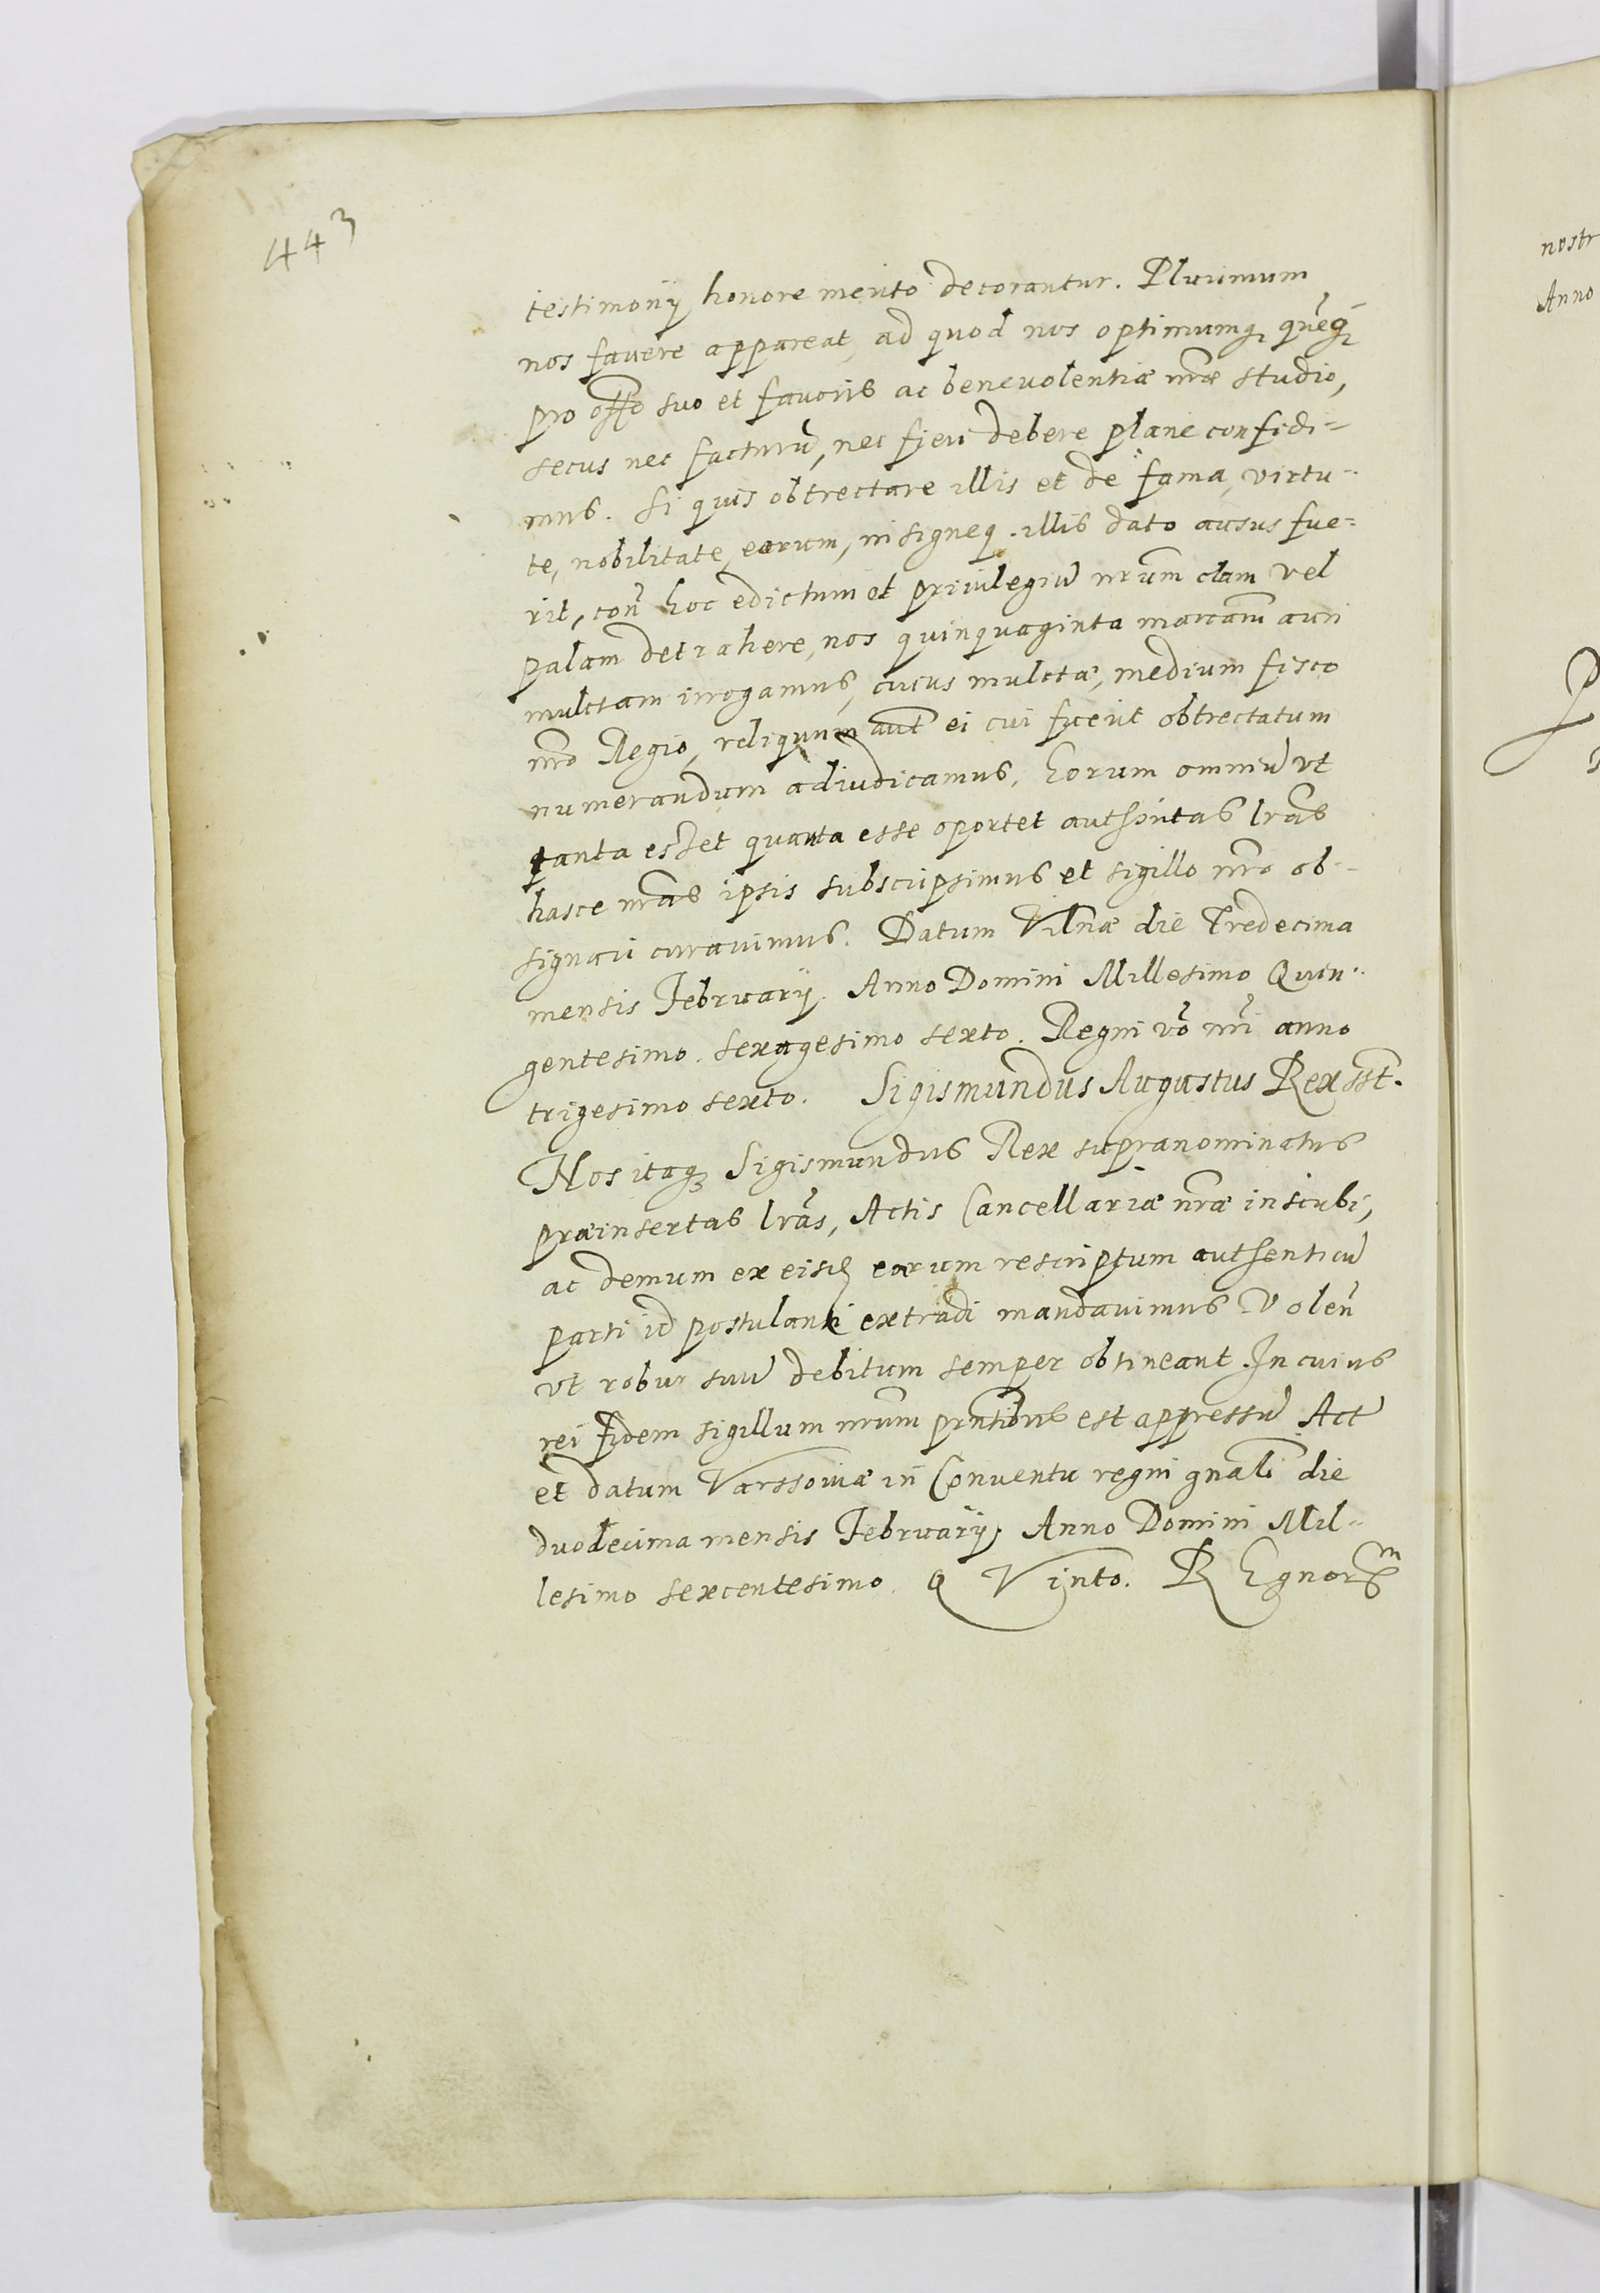 443
testimonÿ honore merito decorantur. Plurimum
nos favere appareat, ad quod nos optimumq queq
pro offo suo et favoris ac benevolentiæ nræ studio,
secus nec facturũ, nec fieri debere plane confidi=
mus. Si quis obtrectare illis et de fama, virtu=
te, nobilitate, eorum, insigneq. illis dato ausus fue=
rit, con̄ hoc edictum et priuilegiũ nrum clam vel
palam detrahere, nos quinquaginta marcam̄ auri
mulctam irrogamus, cuius mulctæ, medium fisco
nro Regio, reliquum aut̄ ei cui fuerit obtrectatum
numerandum adiudicamus. Eorum omniũ vt
tanta esset quanta esse oportet authoritas lras
hasce nras ipsis subscripsimus et sigillo nro ob=
signari curavimus. Datum Vilnæ die Tredecima
mensis Februarÿ. Anno Domini Millesimo Quin=
gentesimo. sexagesimo sexto. Regni vō nri anno
trigesimo sexto. Sigismundus Augustus Rex sst.
Nos itaq Sigismundus Rex supranominatus
præinsertas lras, Actis Cancellariæ nræ inscribi,
ac demum ex eisd eorum rescriptum authenticũ
parti id postulanti extradi mandavimus Volen̄
vt robur suũ debitum semper obtineant. In cuius
rei fidem sigillum nrum prntibus est appressũ. Actũ
et datum Varssoviæ in Conventu regni gnali die
duodecima mensis Februarÿ, Anno Domini Mil=
lesimo sexcentesimo. QVinto. REgnorm
nostr
Anno